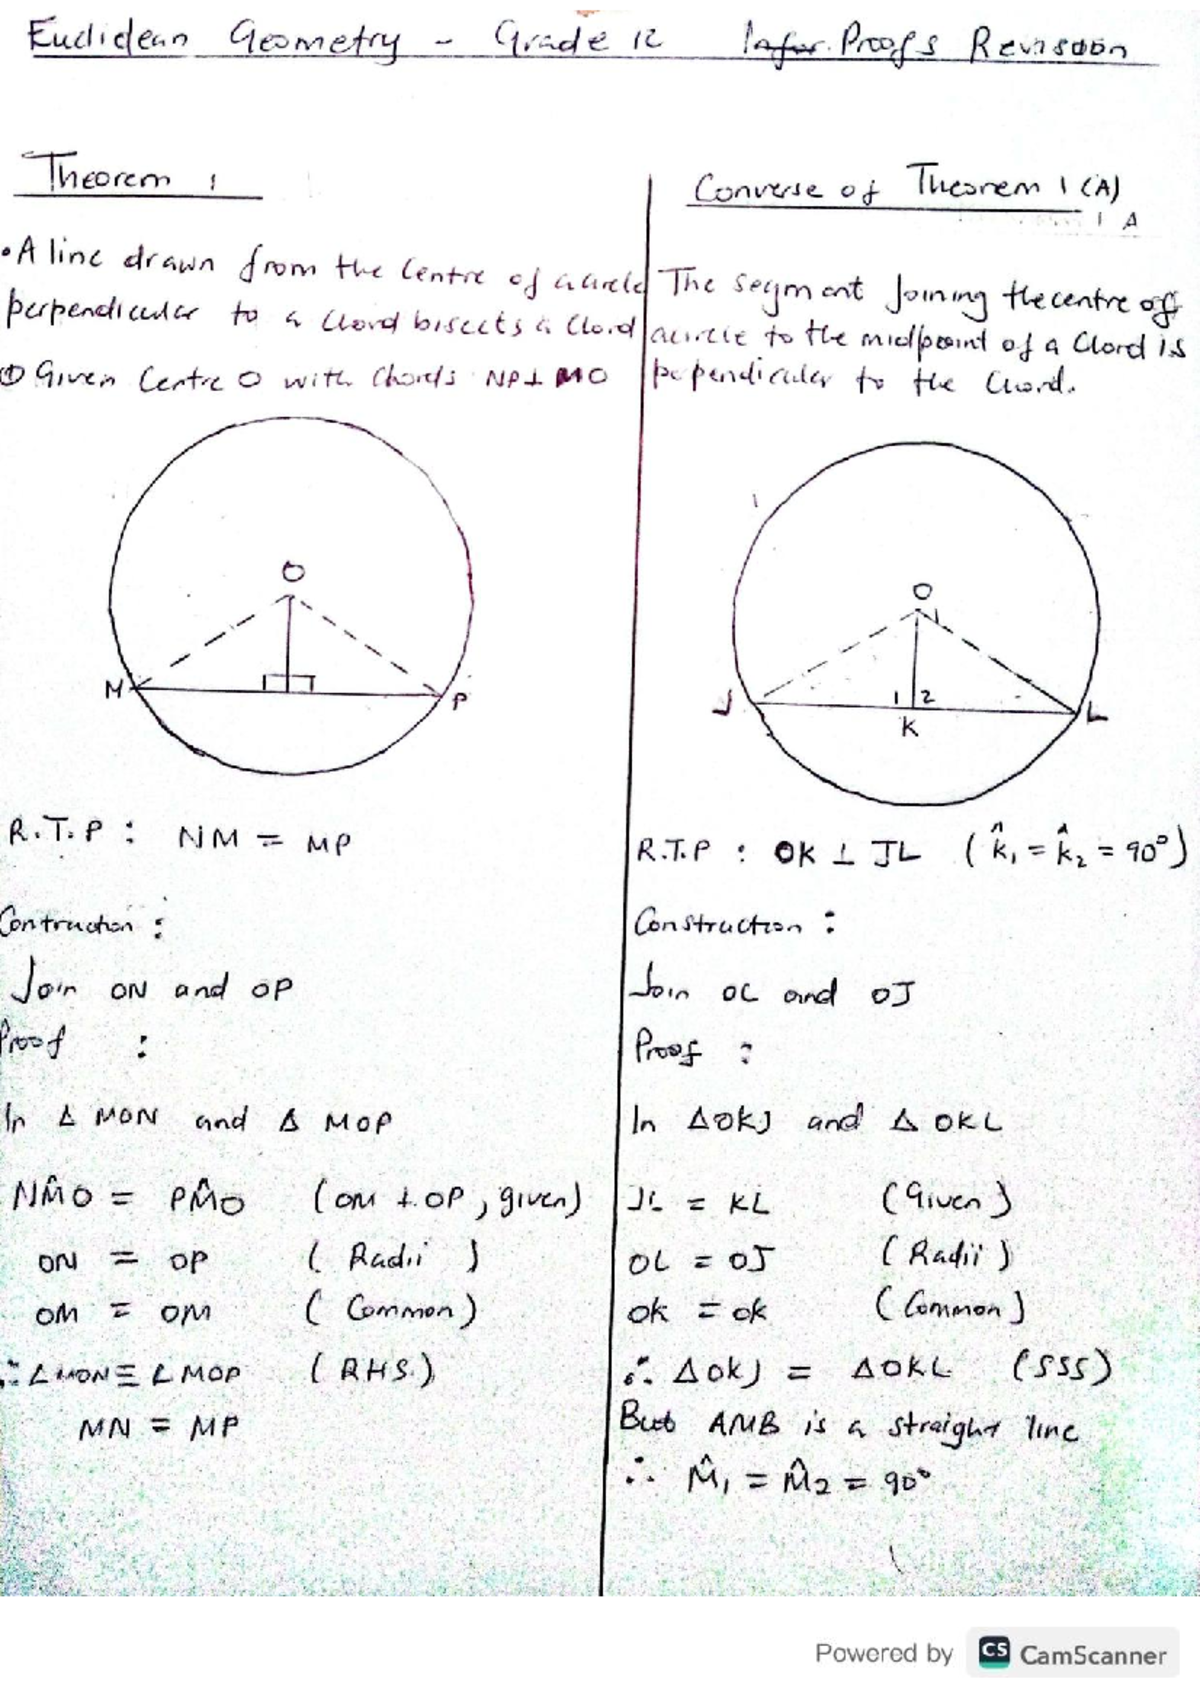 Euclidean Geometry - Grade 12 Proofs Revision
Theorem 1
• A line drawn from the Centre of a circle
perpendicular to a Chord bisects a Chord
① Given Centre O with Chords NP⊥MO
O
M
P
R.T.P : NM = MP
Contruction :
Join ON and OP
Proof :
In Δ MON and Δ MOP
NM̂O = PM̂O (OM ⊥ OP, given)
ON = OP (Radii)
OM = OM (Common)
∴ ∠MON ≡ ∠MOP (RHS.)
MN = MP
Converse of Theorem 1 (A)
1 A
The segment Joining the centre off
a circle to the midpoint of a Chord is
pependicular to the Chord.
O
1
J
1 2
L
K
R.T.P : OK ⊥ JL (k̂₁ = k̂₂ = 90°)
Construction :
Join OL and OJ
Proof :
In ΔOKJ and Δ OKL
JL = KL (Given)
OL = OJ (Radii)
OK = OK (Common)
∴ ΔOKJ = ΔOKL (SSS)
But AMB is a straight line
∴ M̂₁ = M̂₂ = 90°
Powered by CS CamScanner